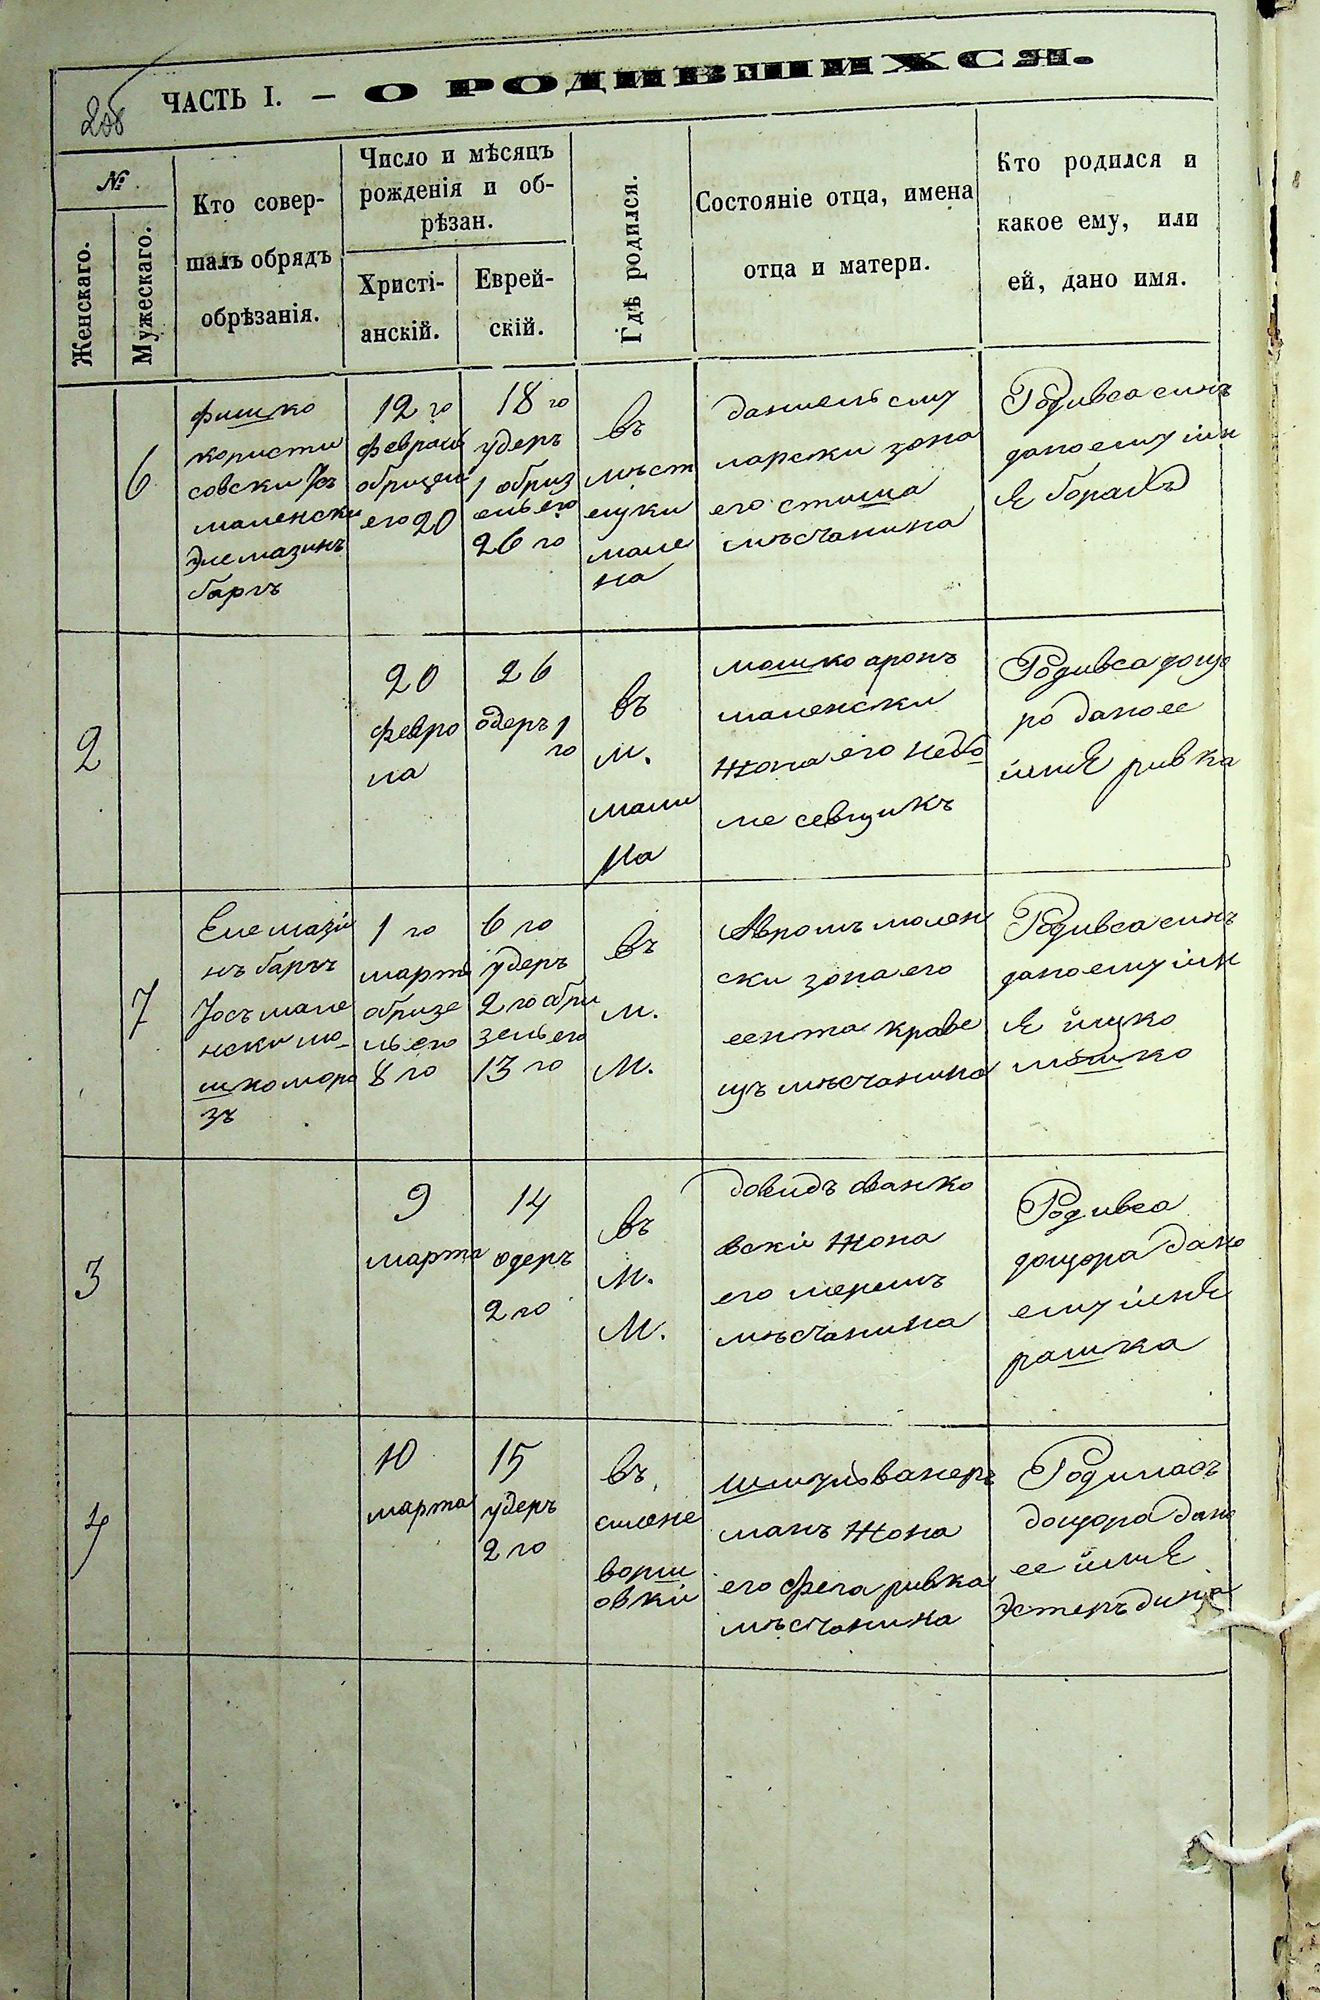 208
ЧАСТЬ I. — О РОДИВШИХСЯ.
№
Женскаго.
Мужескаго.
Кто совер-
шалъ обрядъ
обрѣзанія.
Число и мѣсяцъ
рожденія и об-
рѣзан.
Христі-
анскій.
Еврей-
скій.
Гдѣ родился.
Состояніе отца, имена
отца и матери.
Кто родился и
какое ему, или
ей, дано имя.
6
фишко
користи
совски
маленски
Элемазинъ
баръ
12 го
февраля
его 20
18 го
удеръ
1 обриз
26 го
въ
мѣст
ечки
мале
на
даниелъ сму
ларски зона
его
мѣсчанина
Родився синъ
дано ему імн
Я
2
20
февро
ла
26
одеръ 1
го
въ
м.
мали
на
мошко аронъ
маленски
жона его
ме севщикъ
Родився доще
ро дано ее
імня ривка
7
Елемазі
нъ баръ
Йосъ мале
нски мо
шко моро
зъ
1 го
марта
обризе
лъ его
8 го
6 го
удеръ
2 го обри
зелъ его
13 го
въ
м.
м.
Авромъ мален
ски зона его
ента краве
цъ мѣсчанина
Родився синъ
дано ему імн
я йцко
мошко
3
9
марта
14
одеръ
2 го
въ
м.
м.
довидъ сванко
вскій жона
его мерешъ
мѣсчанина
Родився
дощора дано
ему імня
рашка
4
10
марта
15
удеръ
2 го
въ
слоне
ворш
овкі
шмуль ванер
манъ жона
его фега ривка
мѣсчанина
Родилась
дощора дано
ее йимя
Эстеръ дина